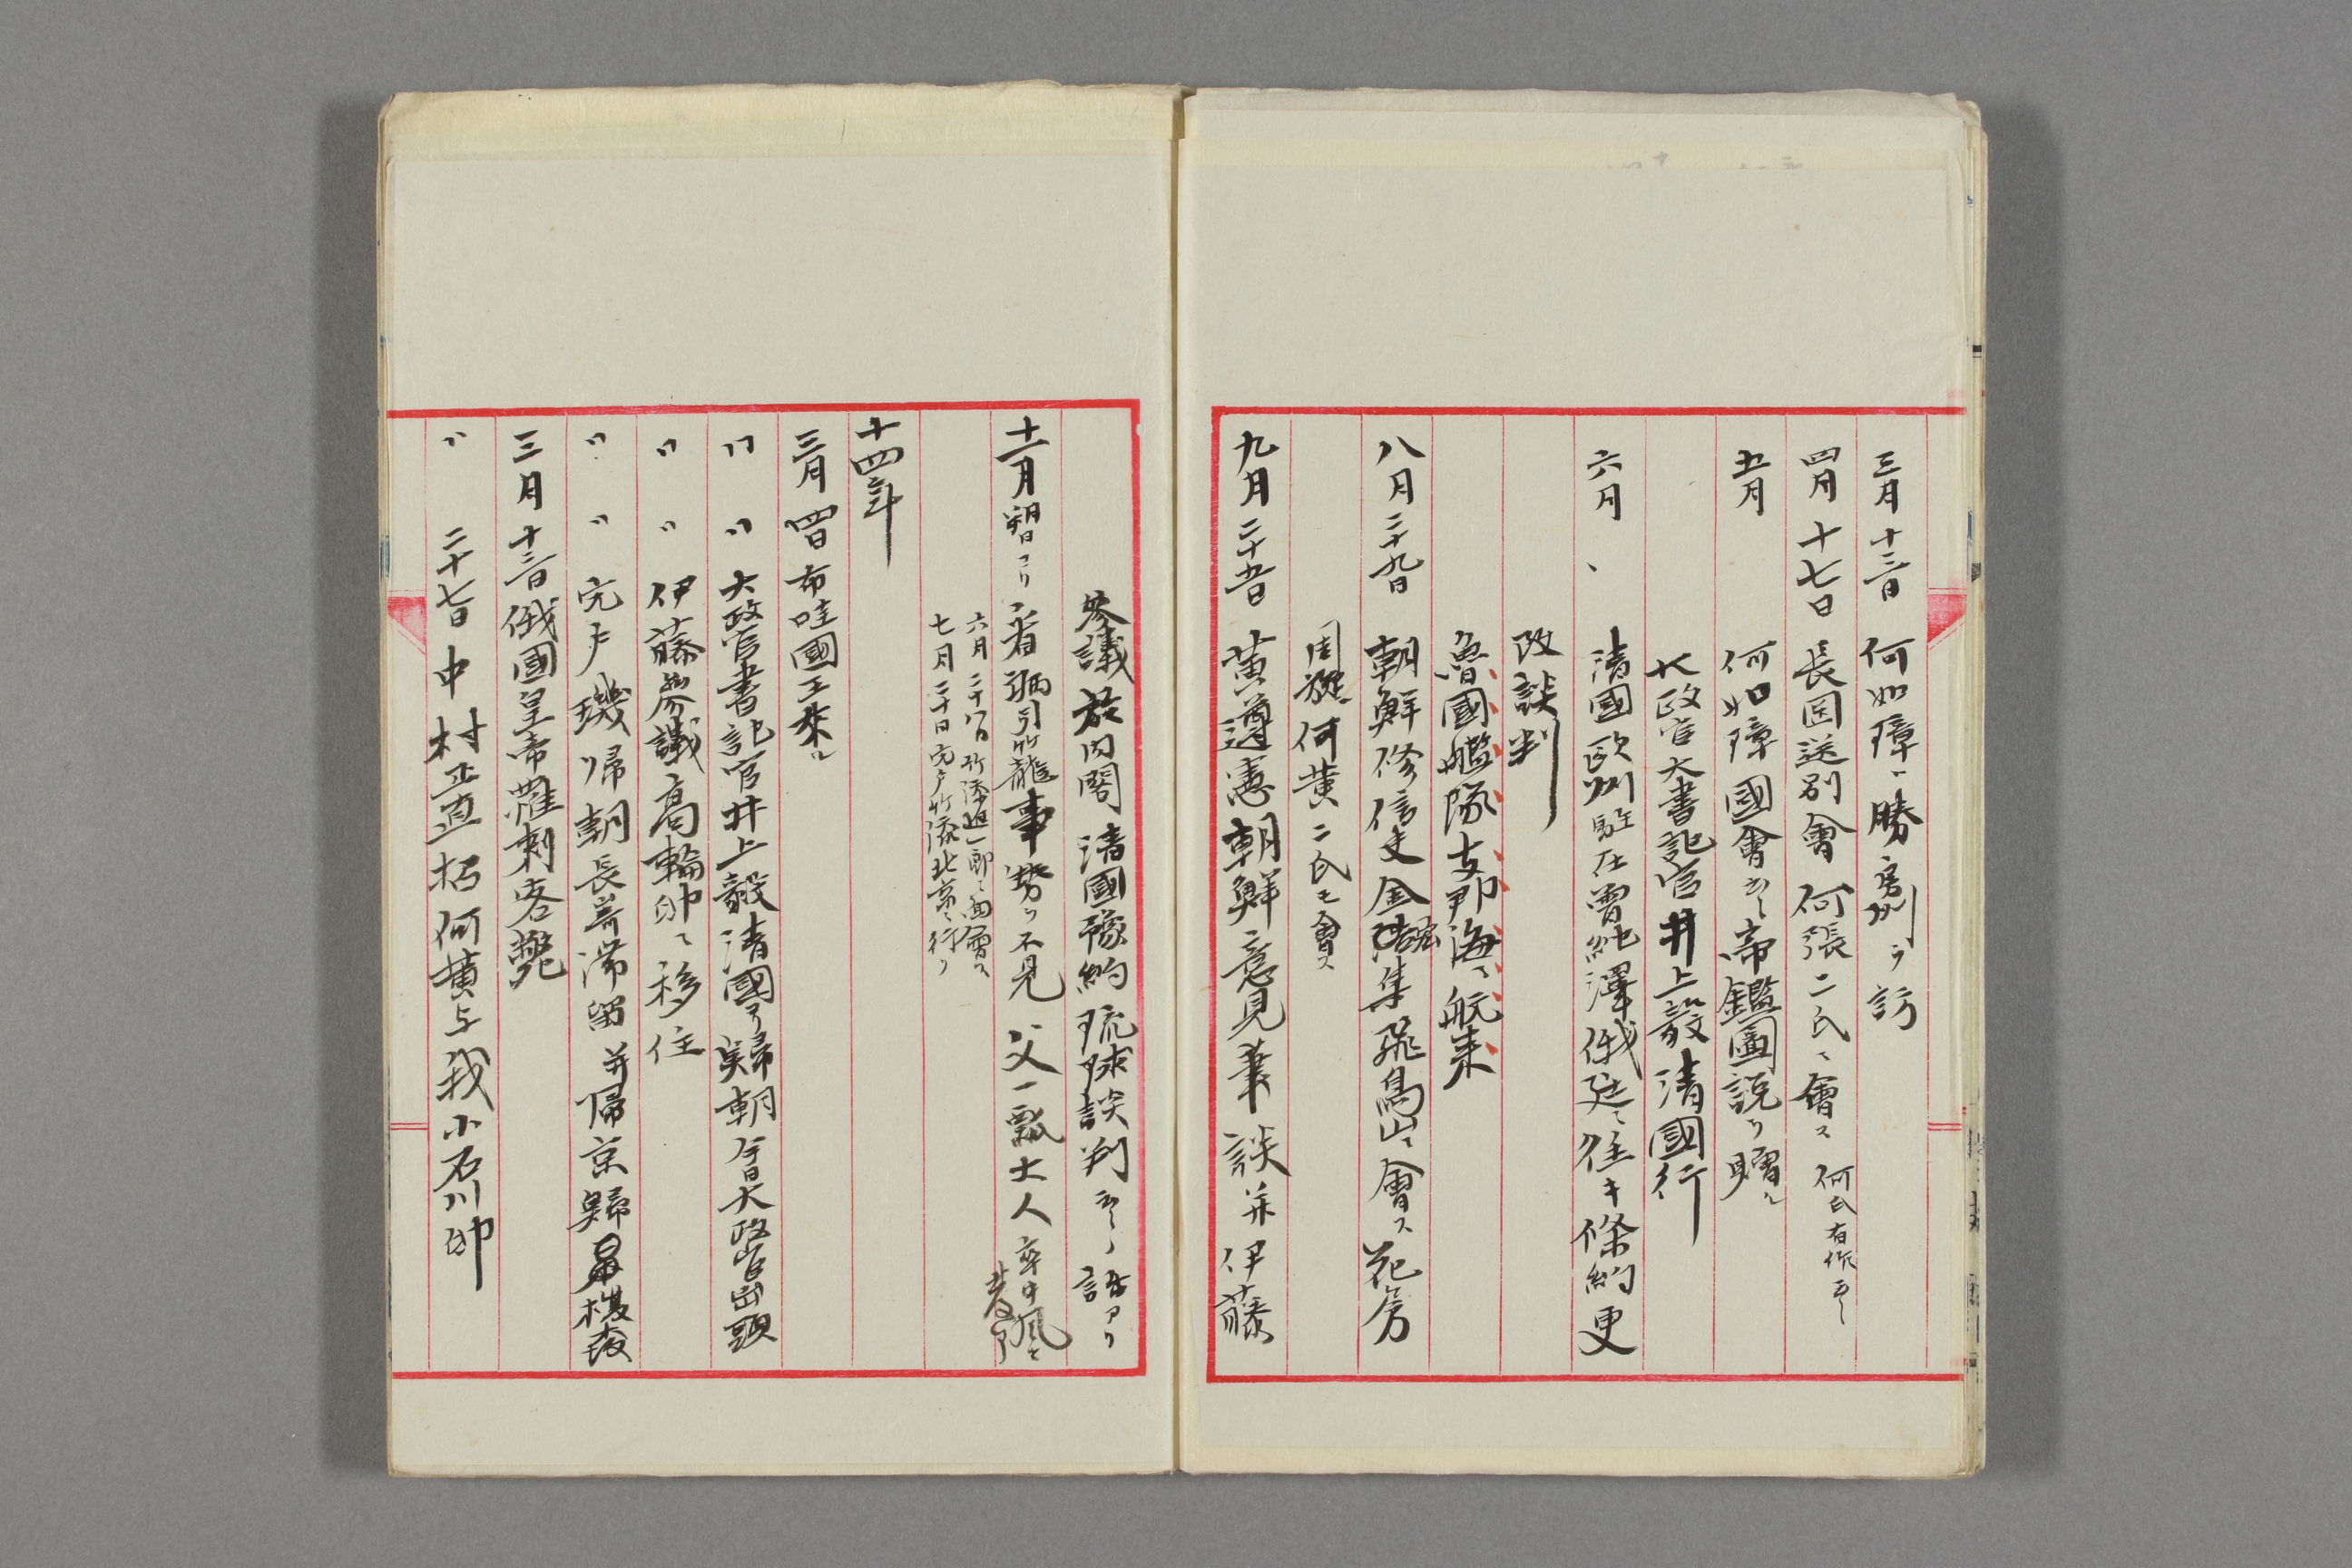 三月十二日 何如璋ト勝房州ヲ訪
四月十七日 長岡送別會 何張二氏ニ會ス 何氏有作云々
五月 何如璋國會云々 帝鑑圖説ヲ贈ル
大政官大書記官井上毅清國行
六月、 清國欧州駐在曽紀澤俄廷ニ往キ條約更
改談判
魯國艦隊支那海ニ航来
八月二十九日 朝鮮修信史金宏集飛鳥山ニ會ス 花房
周旋 何黄二氏モ會ス
九月二十五日 黄遵憲朝鮮意見筆談并伊藤
參議於内閣清國豫約琉球談判云々ノ話アリ
十一月朔日ヨリ 看病引籠事務ヲ不見 父一瓢士人卒中風ニ
六月二十八日 竹添進一郎ニ面會ス
七月二十日 宍戸竹添北京ニ行ク
十四年
三月四日 布哇國王来ル
〃 〃 大政官書記官井上毅清國ヨリ歸朝 今日大政官出頭
〃 〃 伊藤參議高輪邸ニ移住
〃 〃 宍戸璣帰朝 長崎滞留并帰京
三月十三日 俄國皇帝罹刺客斃
〃 二十七日 中村正直招何黄与我小石川邸